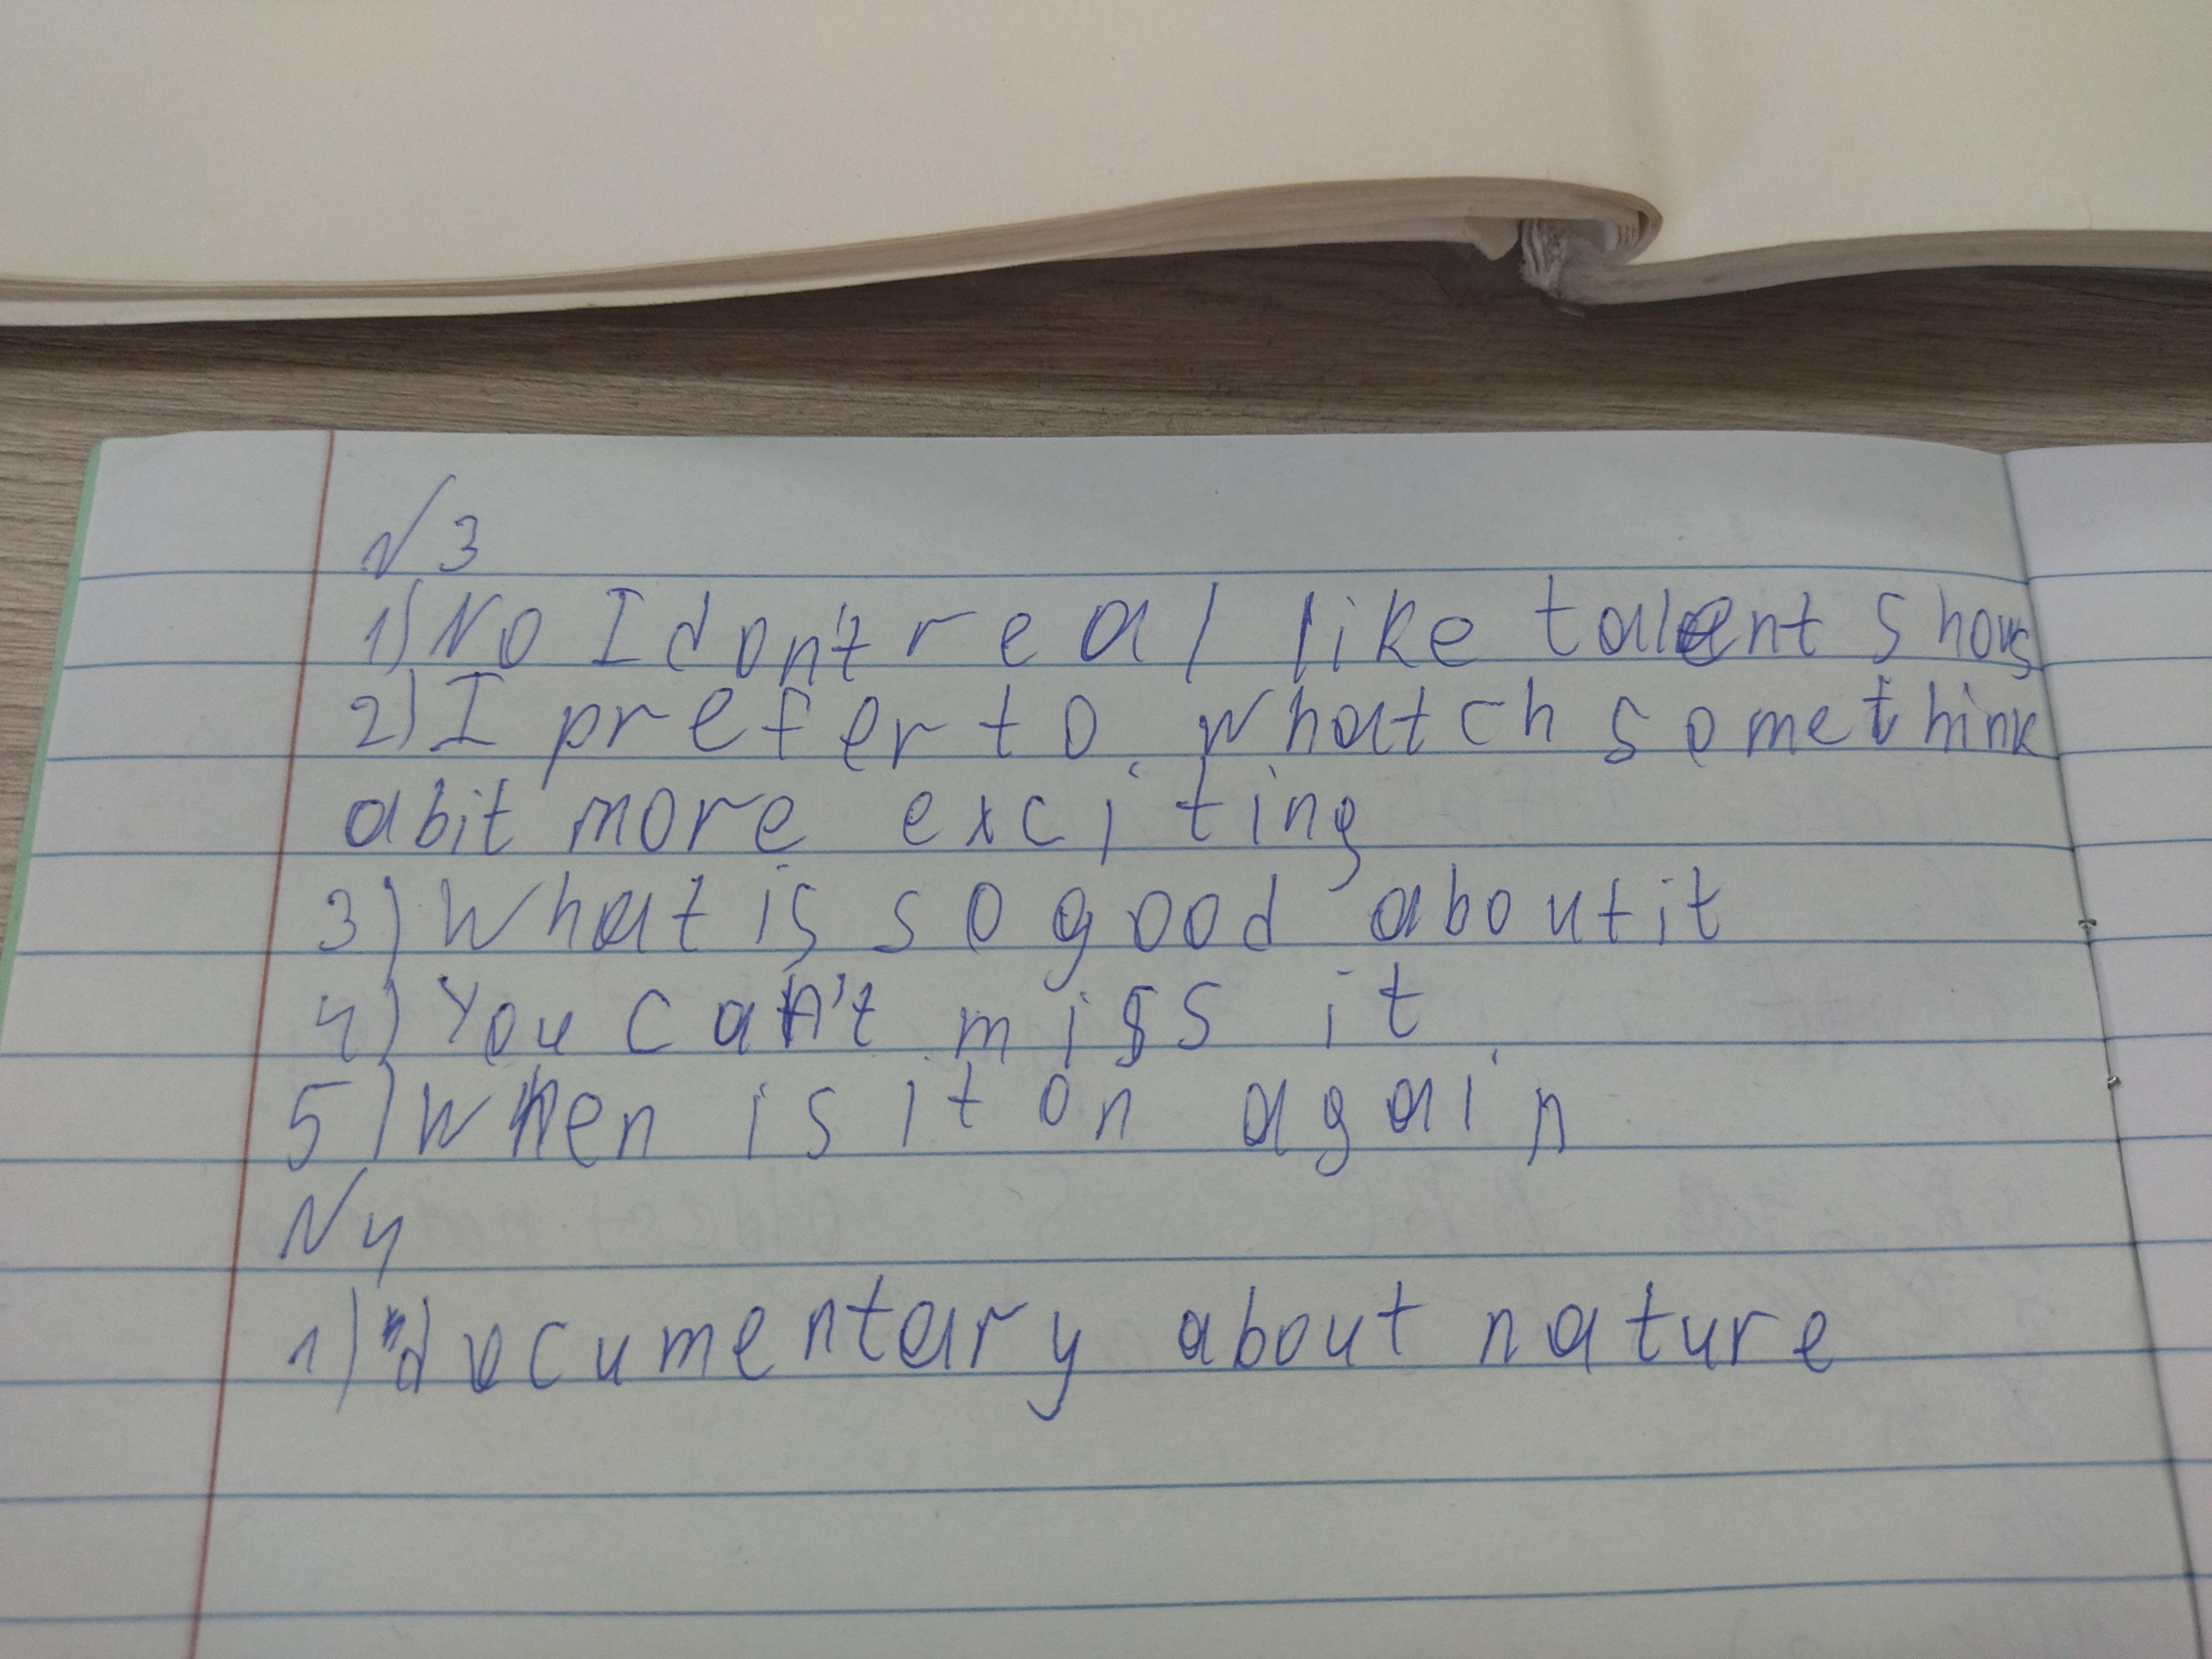 №3
1) No I don't real like talent shows
2) I prefer to whatch somethink
a bit more exciting
3) What is so good about it
4) You can't miss it
5) When is it on again
N4
1) documentary about nature